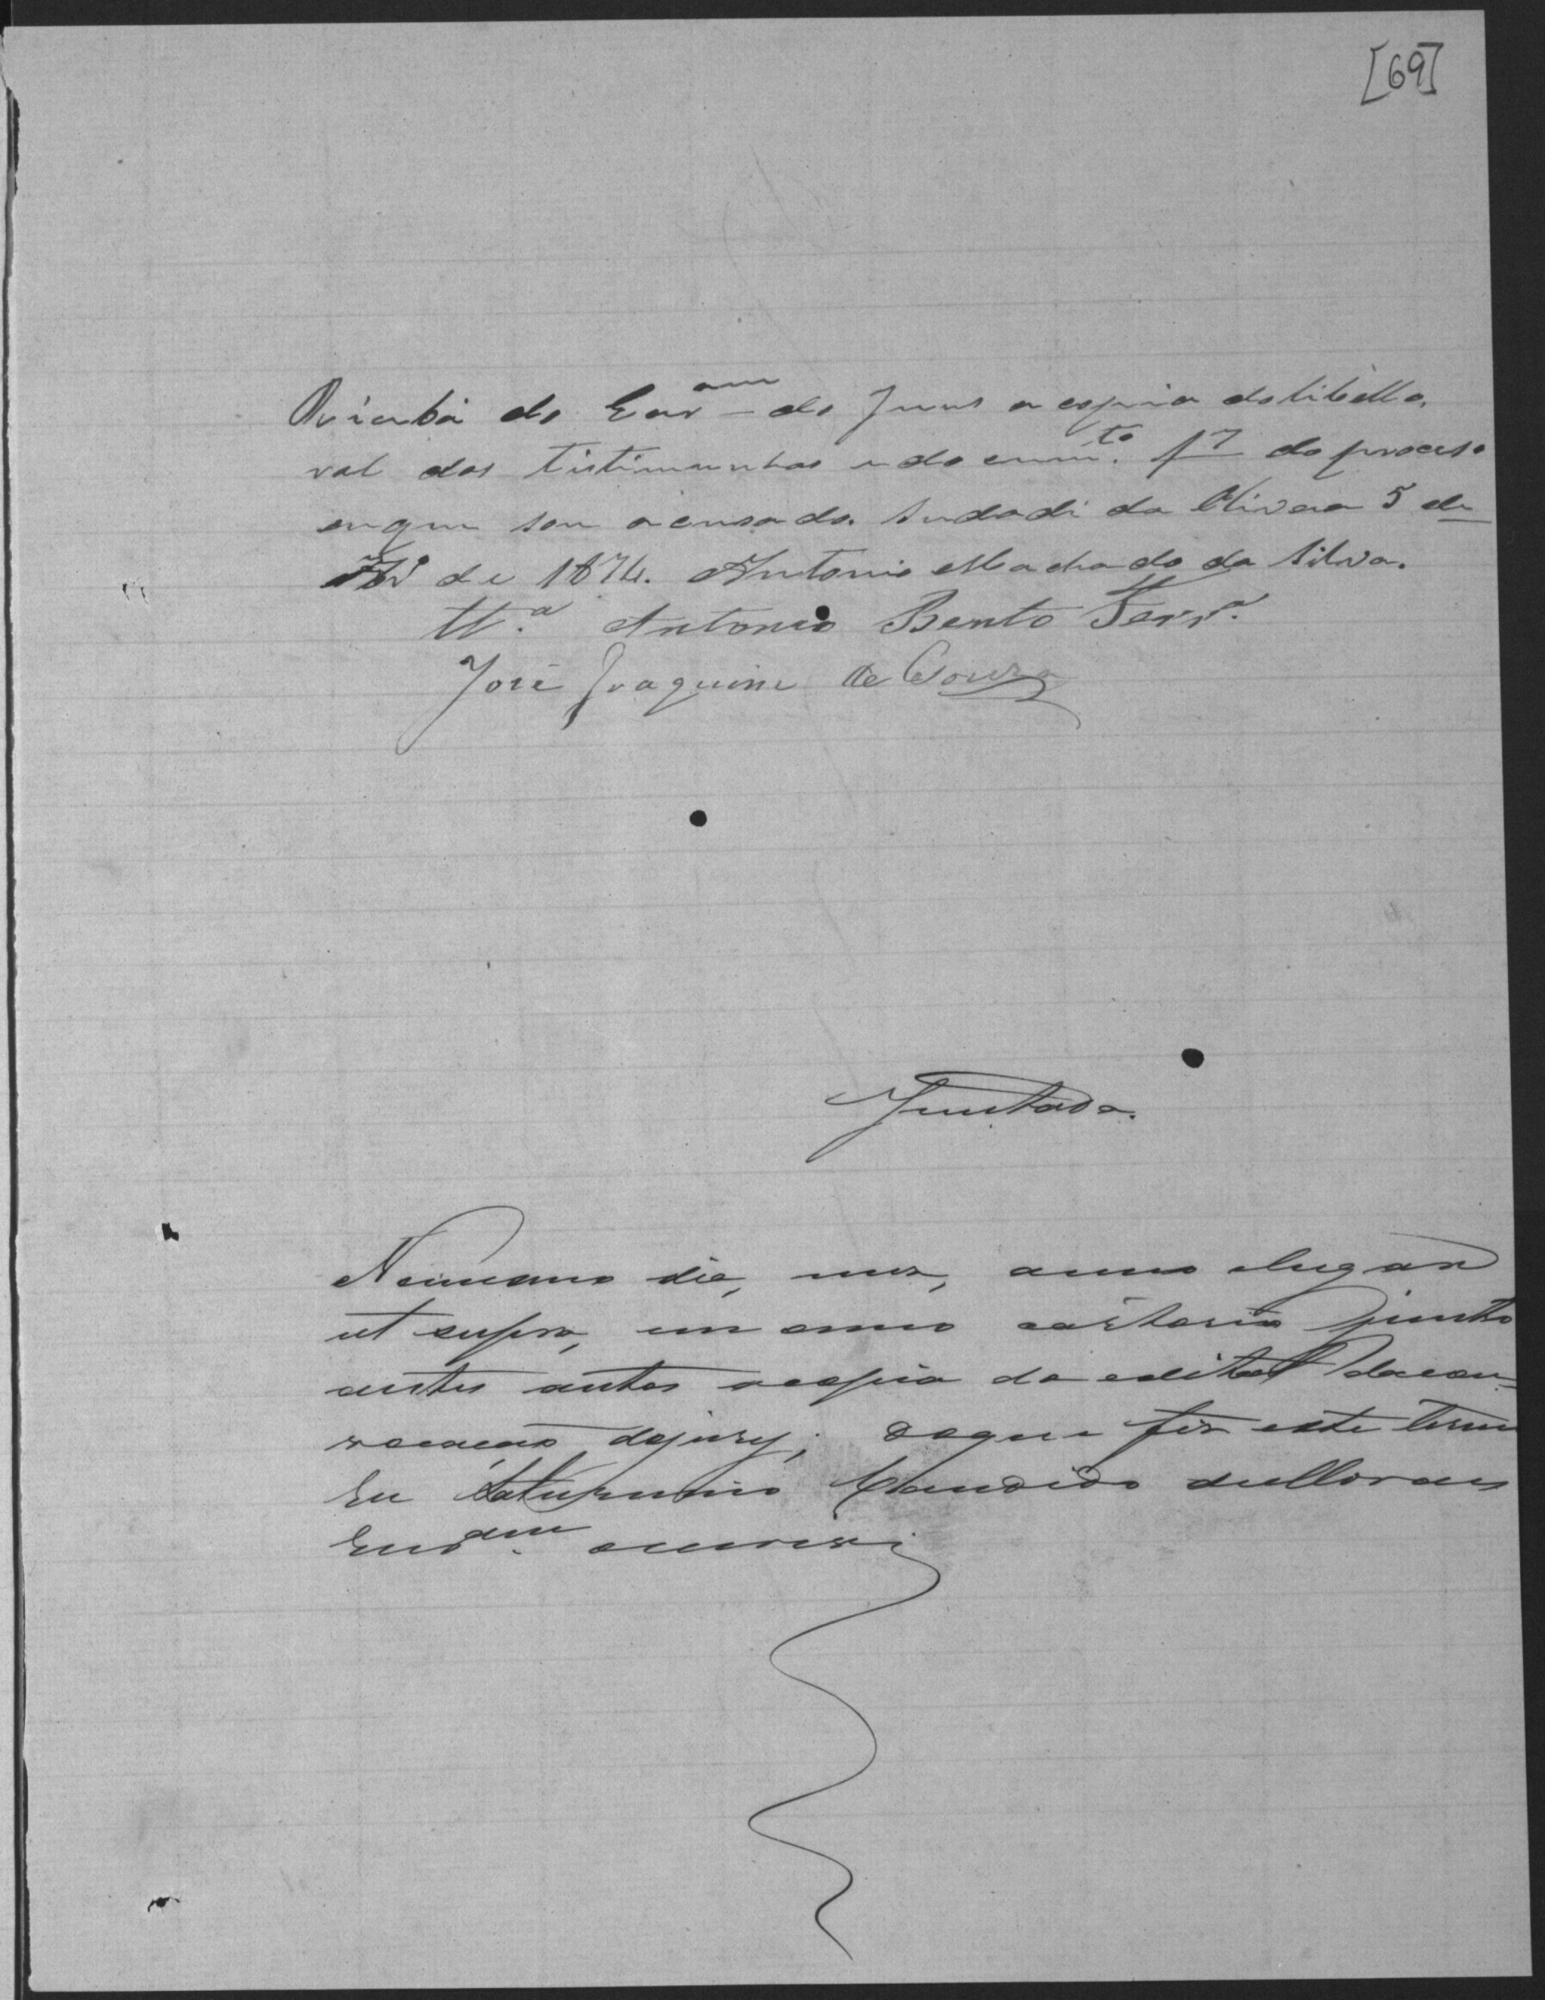 [69]
Ricibi do Escr am do Jury a copia do libéllo,
rol das tistimunhas e docum to. f 7 do proceso
em que sou acusado. Sidadi da Oliveira 5 de
de 1874. Antonio Machado da Silva.
Tt.a Antonio Bento Ferr.a
José Joaquim de Souza
Juntada.
No mesmo dia, mez, anno elugar
ut supra, em meu cartorio junto
aestes autos acopia do edital dacon-
vocacao dojury; doque fiz este termo
Eu Saturnino Candido deMoraes
Escr am. escrevi